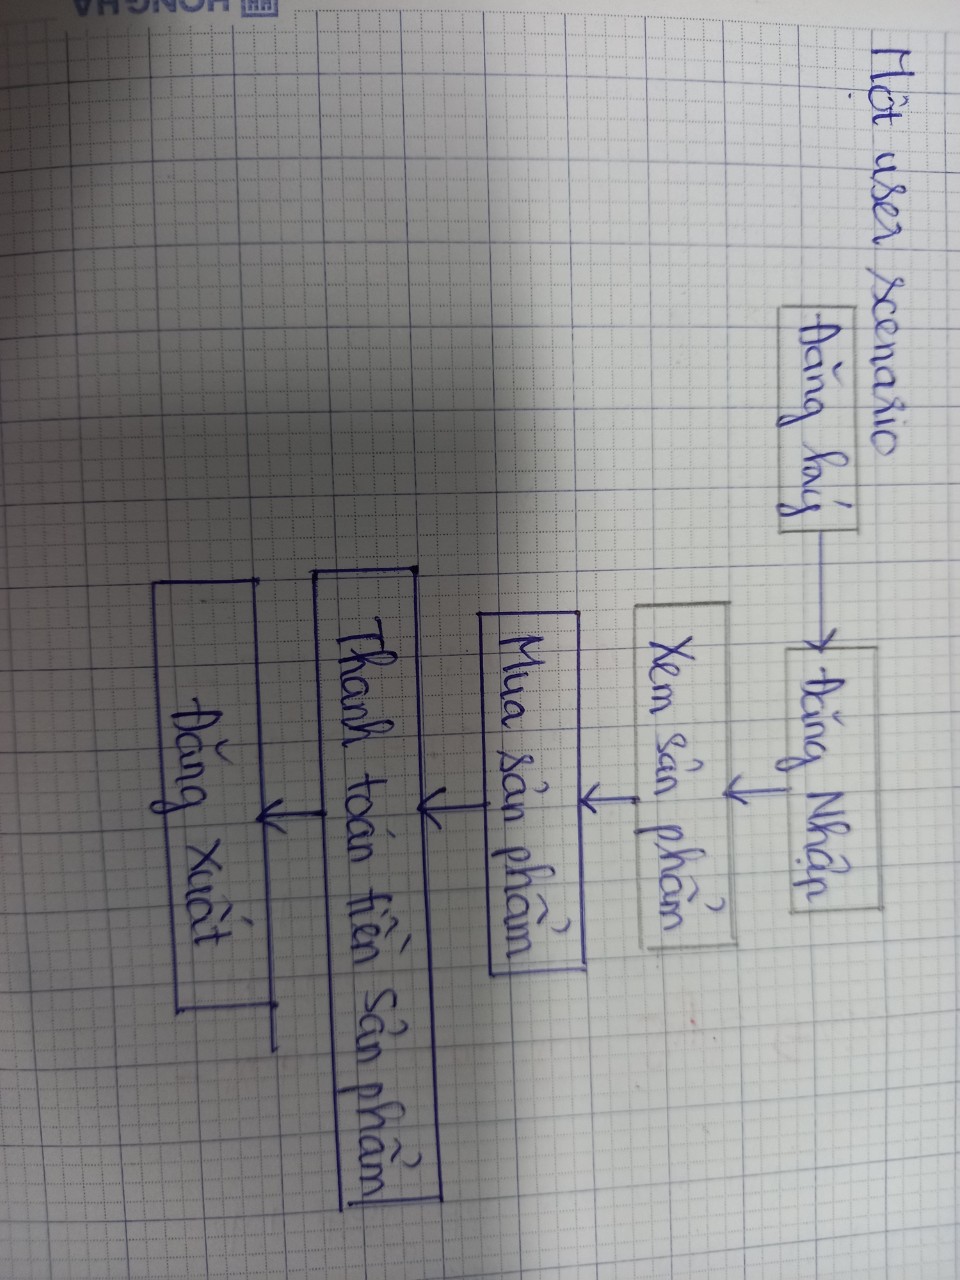 Một user scenario
Đăng ký
Đăng Nhập
Xem sản phẩm
Mua sản phẩm
Thanh toán tiền sản phẩm
Đăng xuất
HONG HA